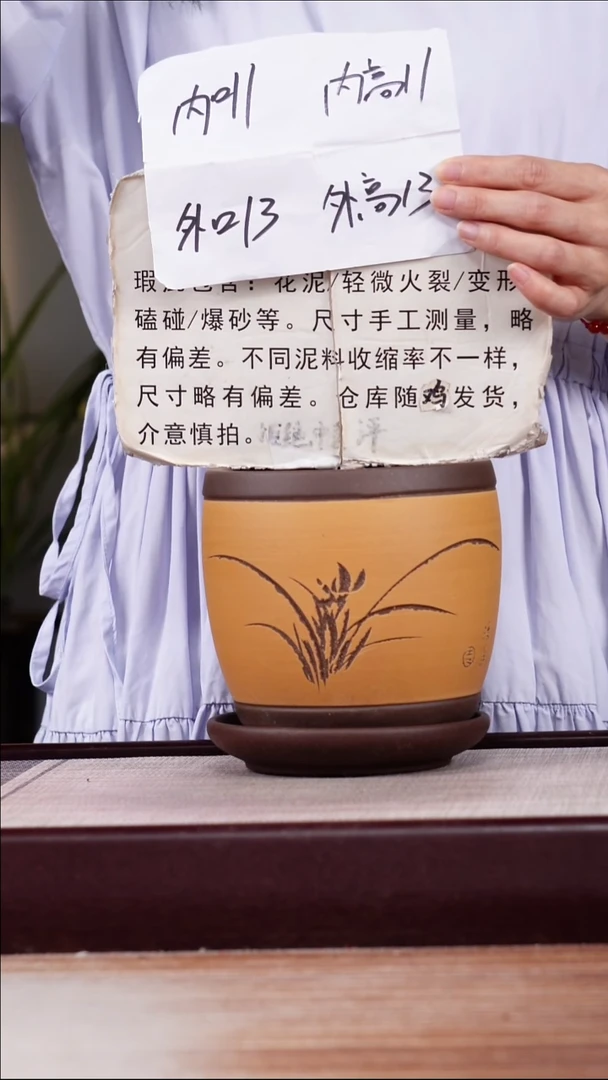 内口11 内高11
外口13 外高13
瑕疵包含：花泥/轻微火裂/变形
磕碰/爆砂等。尺寸手工测量，略
有偏差。不同泥料收缩率不一样，
尺寸略有偏差。仓库随鸡发货，
介意慎拍。